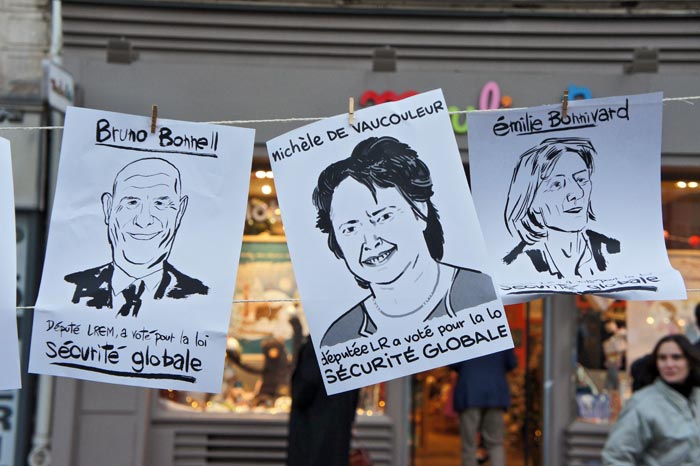 Bruno Bonnell
Député LREM, a voté pour la loi
Sécurité globale
michèle DE VAUCOULEUR
députée LR a voté pour la loi
SÉCURITÉ GLOBALE
émilie Bonnivard
pour la
Sécurité globale